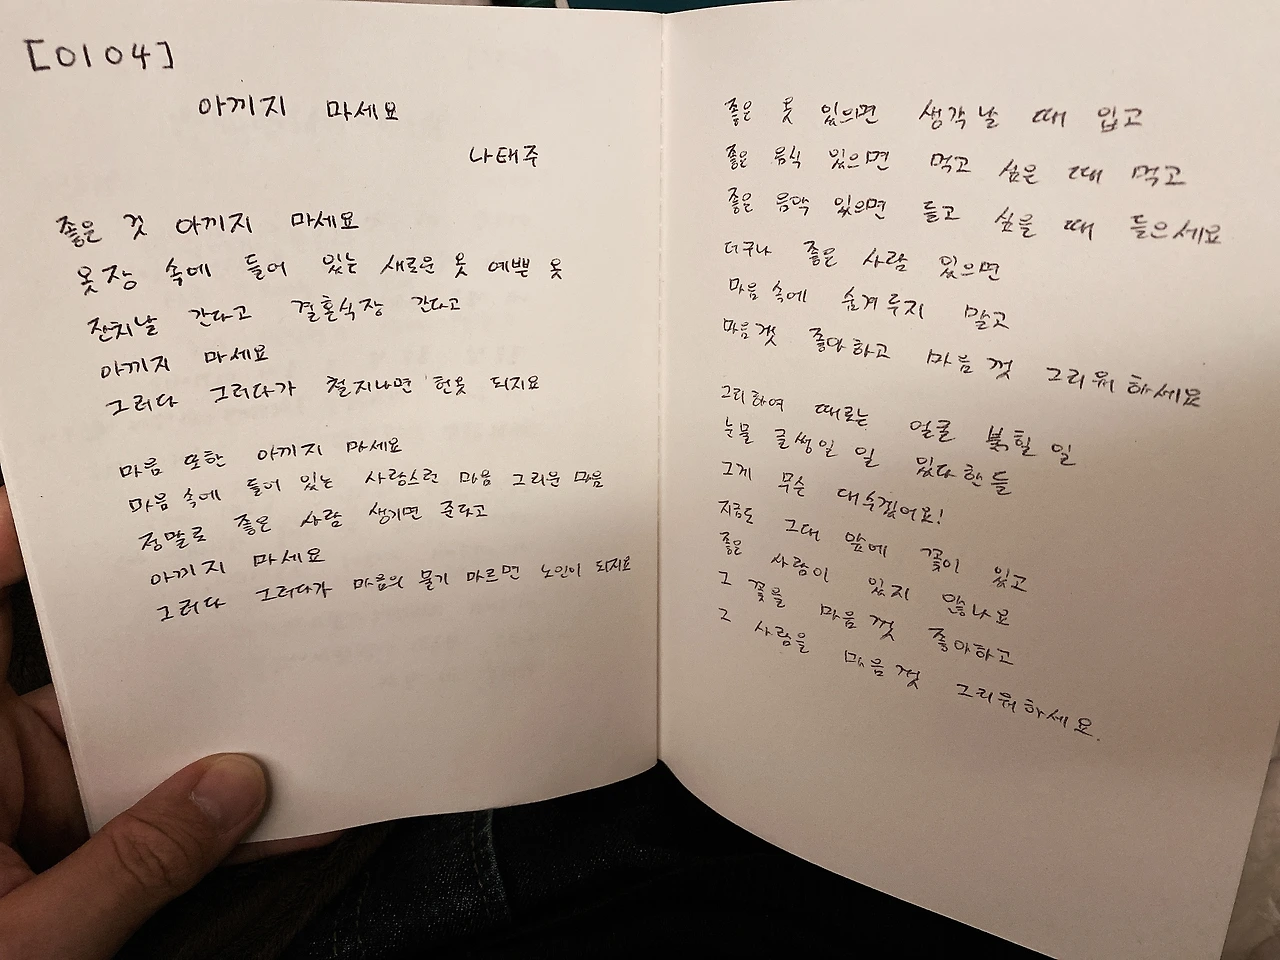 [0104]
아끼지 마세요
나태주
좋은 것 아끼지 마세요
옷장 속에 들어 있는 새로운 옷 예쁜 옷
잔치날 간다고 결혼식장 간다고
아끼지 마세요
그러다 그러다가 철지나면 헌옷 되지요
마음 또한 아끼지 마세요
마음 속에 들어 있는 사랑스런 마음 그리운 마음
정말로 좋은 사람 생기면 준다고
아끼지 마세요
그러다 그러다가 마음의 물기 마르면 노인이 되지요
좋은 옷 있으면 생각날 때 입고
좋은 음식 있으면 먹고 싶은 때 먹고
좋은 음악 있으면 듣고 싶을 때 들으세요
더구나 좋은 사람 있으면
마음 속에 숨겨두지 말고
마음껏 좋아하고 마음껏 그리워하세요
그리하여 때로는 얼굴 붉힐 일
눈물 글썽일 일 있다한들
그게 무슨 대수겠어요!
지금도 그대 앞에 꽃이 있고
좋은 사람이 있지 않나요
그 꽃을 마음껏 좋아하고
그 사람을 마음껏 그리워하세요.